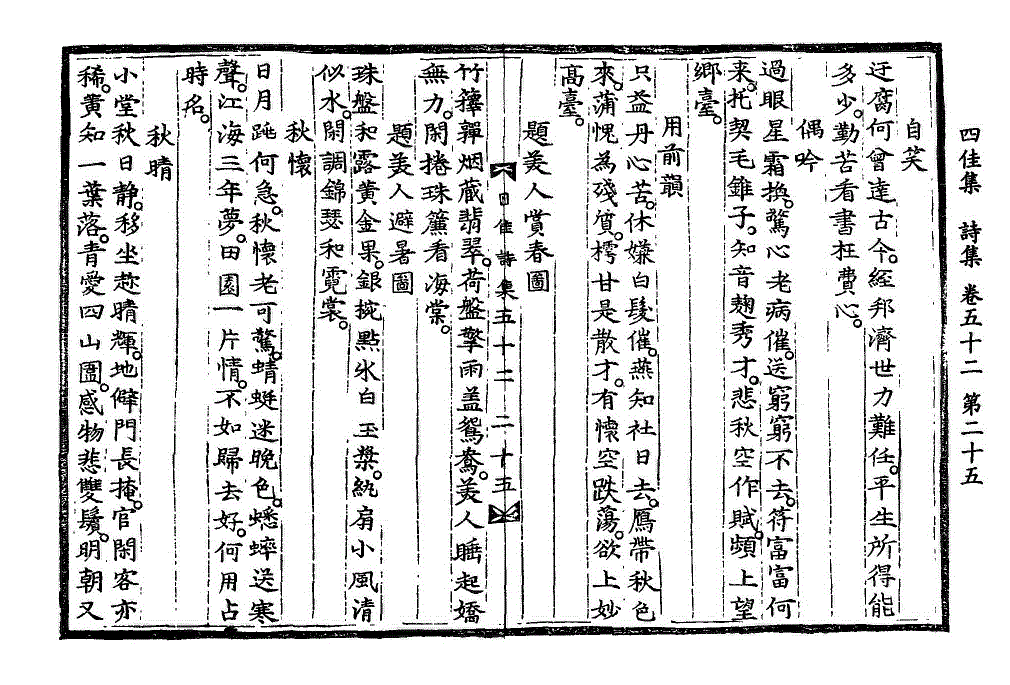 四佳集　詩集　卷五十二　第二十五
自笑
迂腐何曾達古今。經邦濟世力難任。平生所得能
多少。勤苦看書枉費心。
偶吟
過眼星霜換。驚心老病催。送窮窮不去。待富富何
來。托契毛錐子。知音麴秀才。悲秋空作賦。頻上望
鄉臺。
用前韻
只益丹心苦。休嫌白髮催。燕知社日去。鴈帶秋色
來。蒲愧為殘質。樗甘是散才。有懷空跌蕩。欲上妙
高臺。
題美人賞春圖
四佳詩集五十二　二十五
竹籜嚲烟藏翡翠。荷盤擎雨盖鴛鴦。美人睡起嬌
無力。閑捲珠簾看海棠。
題美人避暑圖
珠盤和露黃金果。銀椀點氷白玉漿。紈扇小風清
似水。閑調錦瑟和霓裳。
秋懷
日月跳何急。秋懷老可驚。蜻蜓迷晚色。蟋蟀送寒
聲。江海三年夢。田園一片情。不如歸去好。何用占
時名。
秋晴
小堂秋日静。移坐趁晴輝。地僻門長掩。官閑客亦
稀。黃知一葉落。青愛四山圍。感物悲雙鬢。明朝又